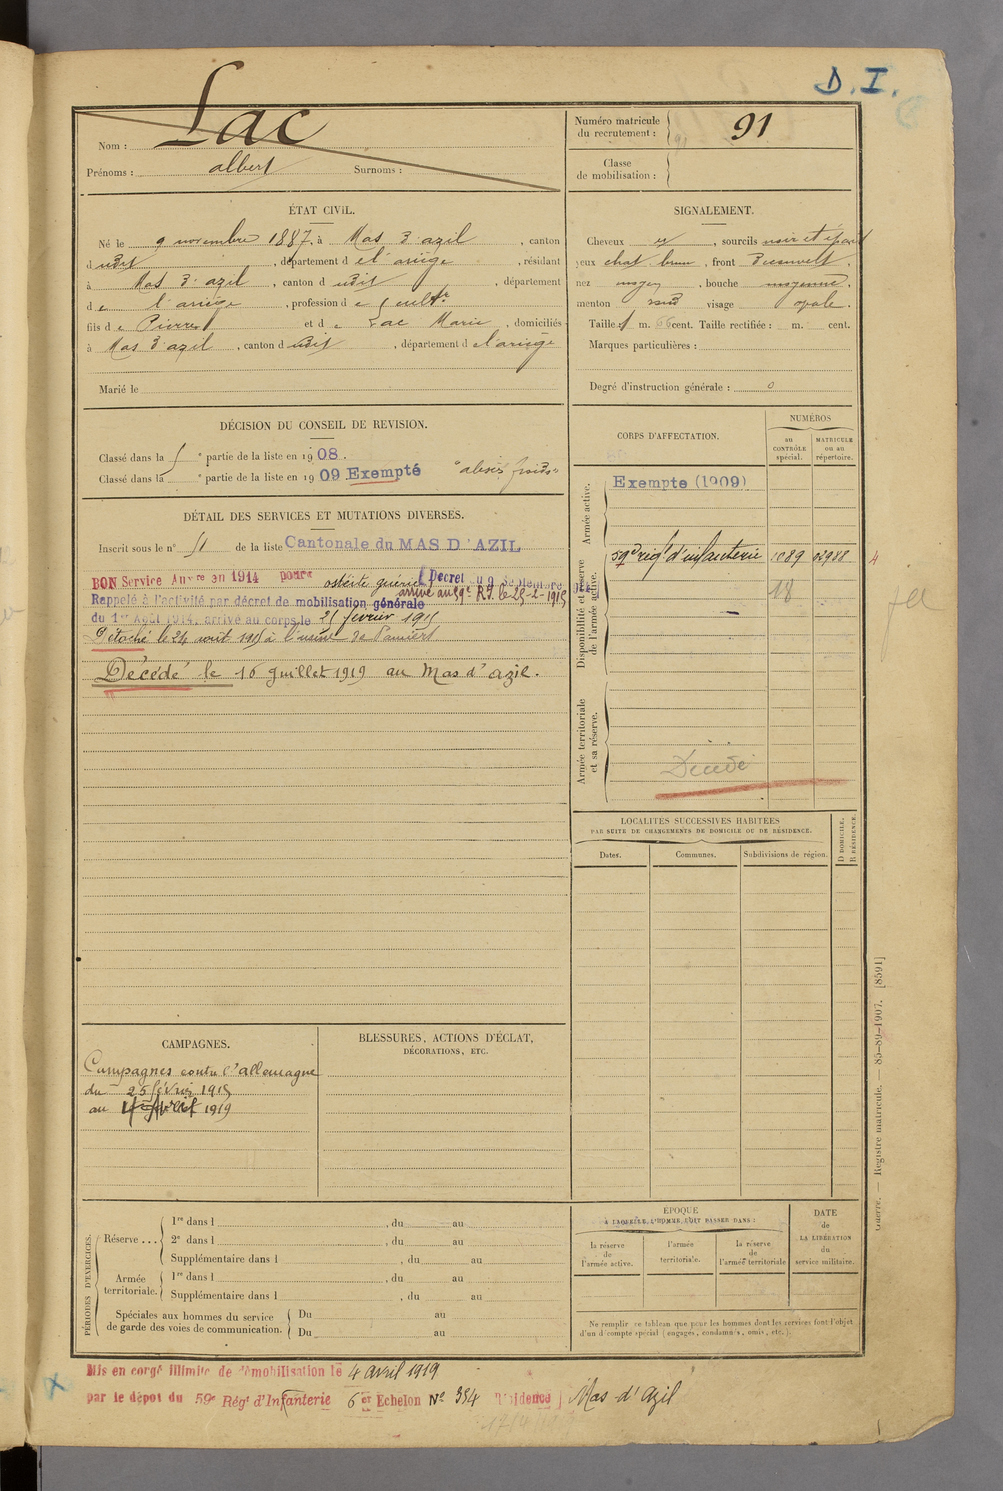 D. I.
Nom : Lac
Prénoms : albert Surnoms :
Numéro matricule du recrutement : 91
Classe de mobilisation :
ÉTAT CIVIL.
Né le 9 novembre 1887, à Mas d'azil, canton
dudit, département de l'ariège, résidant
à Mas d'azil, canton dudit, département
de l'ariège, profession de cultr
fils de Pierre et de Lac Marie, domiciliés
à Mas d'azil, canton dudit, département de l'ariège
Marié le
SIGNALEMENT.
Cheveux, sourcils noir et épais
yeux chat. brun, front
nez moyen, bouche moyenne.
menton rond visage ovale.
Taille : 1 m. 66 cent. Taille rectifiée : m. cent.
Marques particulières :
Degré d'instruction générale : 0
DÉCISION DU CONSEIL DE REVISION.
Classé dans la e partie de la liste en 1908.
Classé dans la e partie de la liste en 1909 Exempté "abcès froids"
DÉTAIL DES SERVICES ET MUTATIONS DIVERSES.
Inscrit sous le n° 51 de la liste Cantonale du MAS D'AZIL
BON Service Auxre en 1914 pour ostéite guérie (Decret du 9 Septembre
Rappelé à l'activité par décret de mobilisation générale arrivé au 59e R.I. le 25-2-1915
du 1er Août 1914, arrivé au corps le 25 février 1915
Détaché le 24 août 1915 à l'usine de Pamiers
Décédé le 16 juillet 1919 au Mas d'azil.
CORPS D'AFFECTATION.
NUMÉROS
au CONTRÔLE spécial.
MATRICULE ou au répertoire.
Armée active.
Exempte (1909)
Disponibilité et réserve de l'armée active.
59e régt d'infanterie 1089 02988
18
4
Armée territoriale et sa réserve.
Décédé
LOCALITÉS SUCCESSIVES HABITÉES
PAR SUITE DE CHANGEMENTS DE DOMICILE OU DE RÉSIDENCE.
Dates. Communes. Subdivisions de région. D DOMICILE. R RÉSIDENCE.
CAMPAGNES.
Campagnes contre l'allemagne
du 25 février 1915
au 4 Avril 1919
BLESSURES, ACTIONS D'ÉCLAT,
DÉCORATIONS, ETC.
PÉRIODES D'EXERCICES.
Réserve ...
1re dans l , du au
2e dans l , du au
Supplémentaire dans l , du au
Armée territoriale.
1re dans l , du au
Supplémentaire dans l , du au
Spéciales aux hommes du service
de garde des voies de communication.
Du au
Du au
ÉPOQUE
À LAQUELLE L'HOMME DOIT PASSER DANS :
la réserve de l'armée active.
l'armée territoriale.
la réserve de l'armée territoriale
DATE de LA LIBÉRATION du service militaire.
Ne remplir ce tableau que pour les hommes dont les services font l'objet
d'un décompte spécial (engagés, condamnés, omis, etc.).
Guerre. — Registre matricule. — 85-89-1907. [8591]
Mis en congé illimité de démobilisation le 4 avril 1919
par le dépot du 59e Régt d'Infanterie 6er Echelon No 354 Résidence Mas-d'Azil